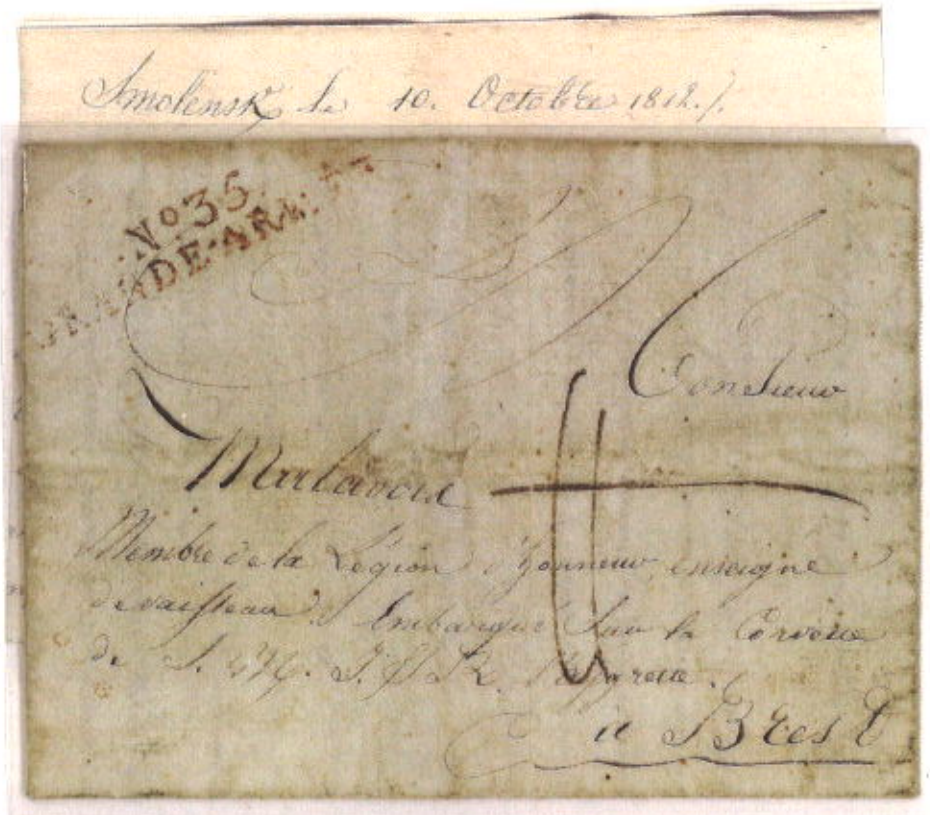 Smolensk le 10. Octobre 1812.
No 35
GRANDE-ARMÉE
Monsieur
Malavois
Membre de la Légion d'honneur, enseigne
de vaisseau Embarqué Sur la Corvette
de S. M. I. & R.
à Brest